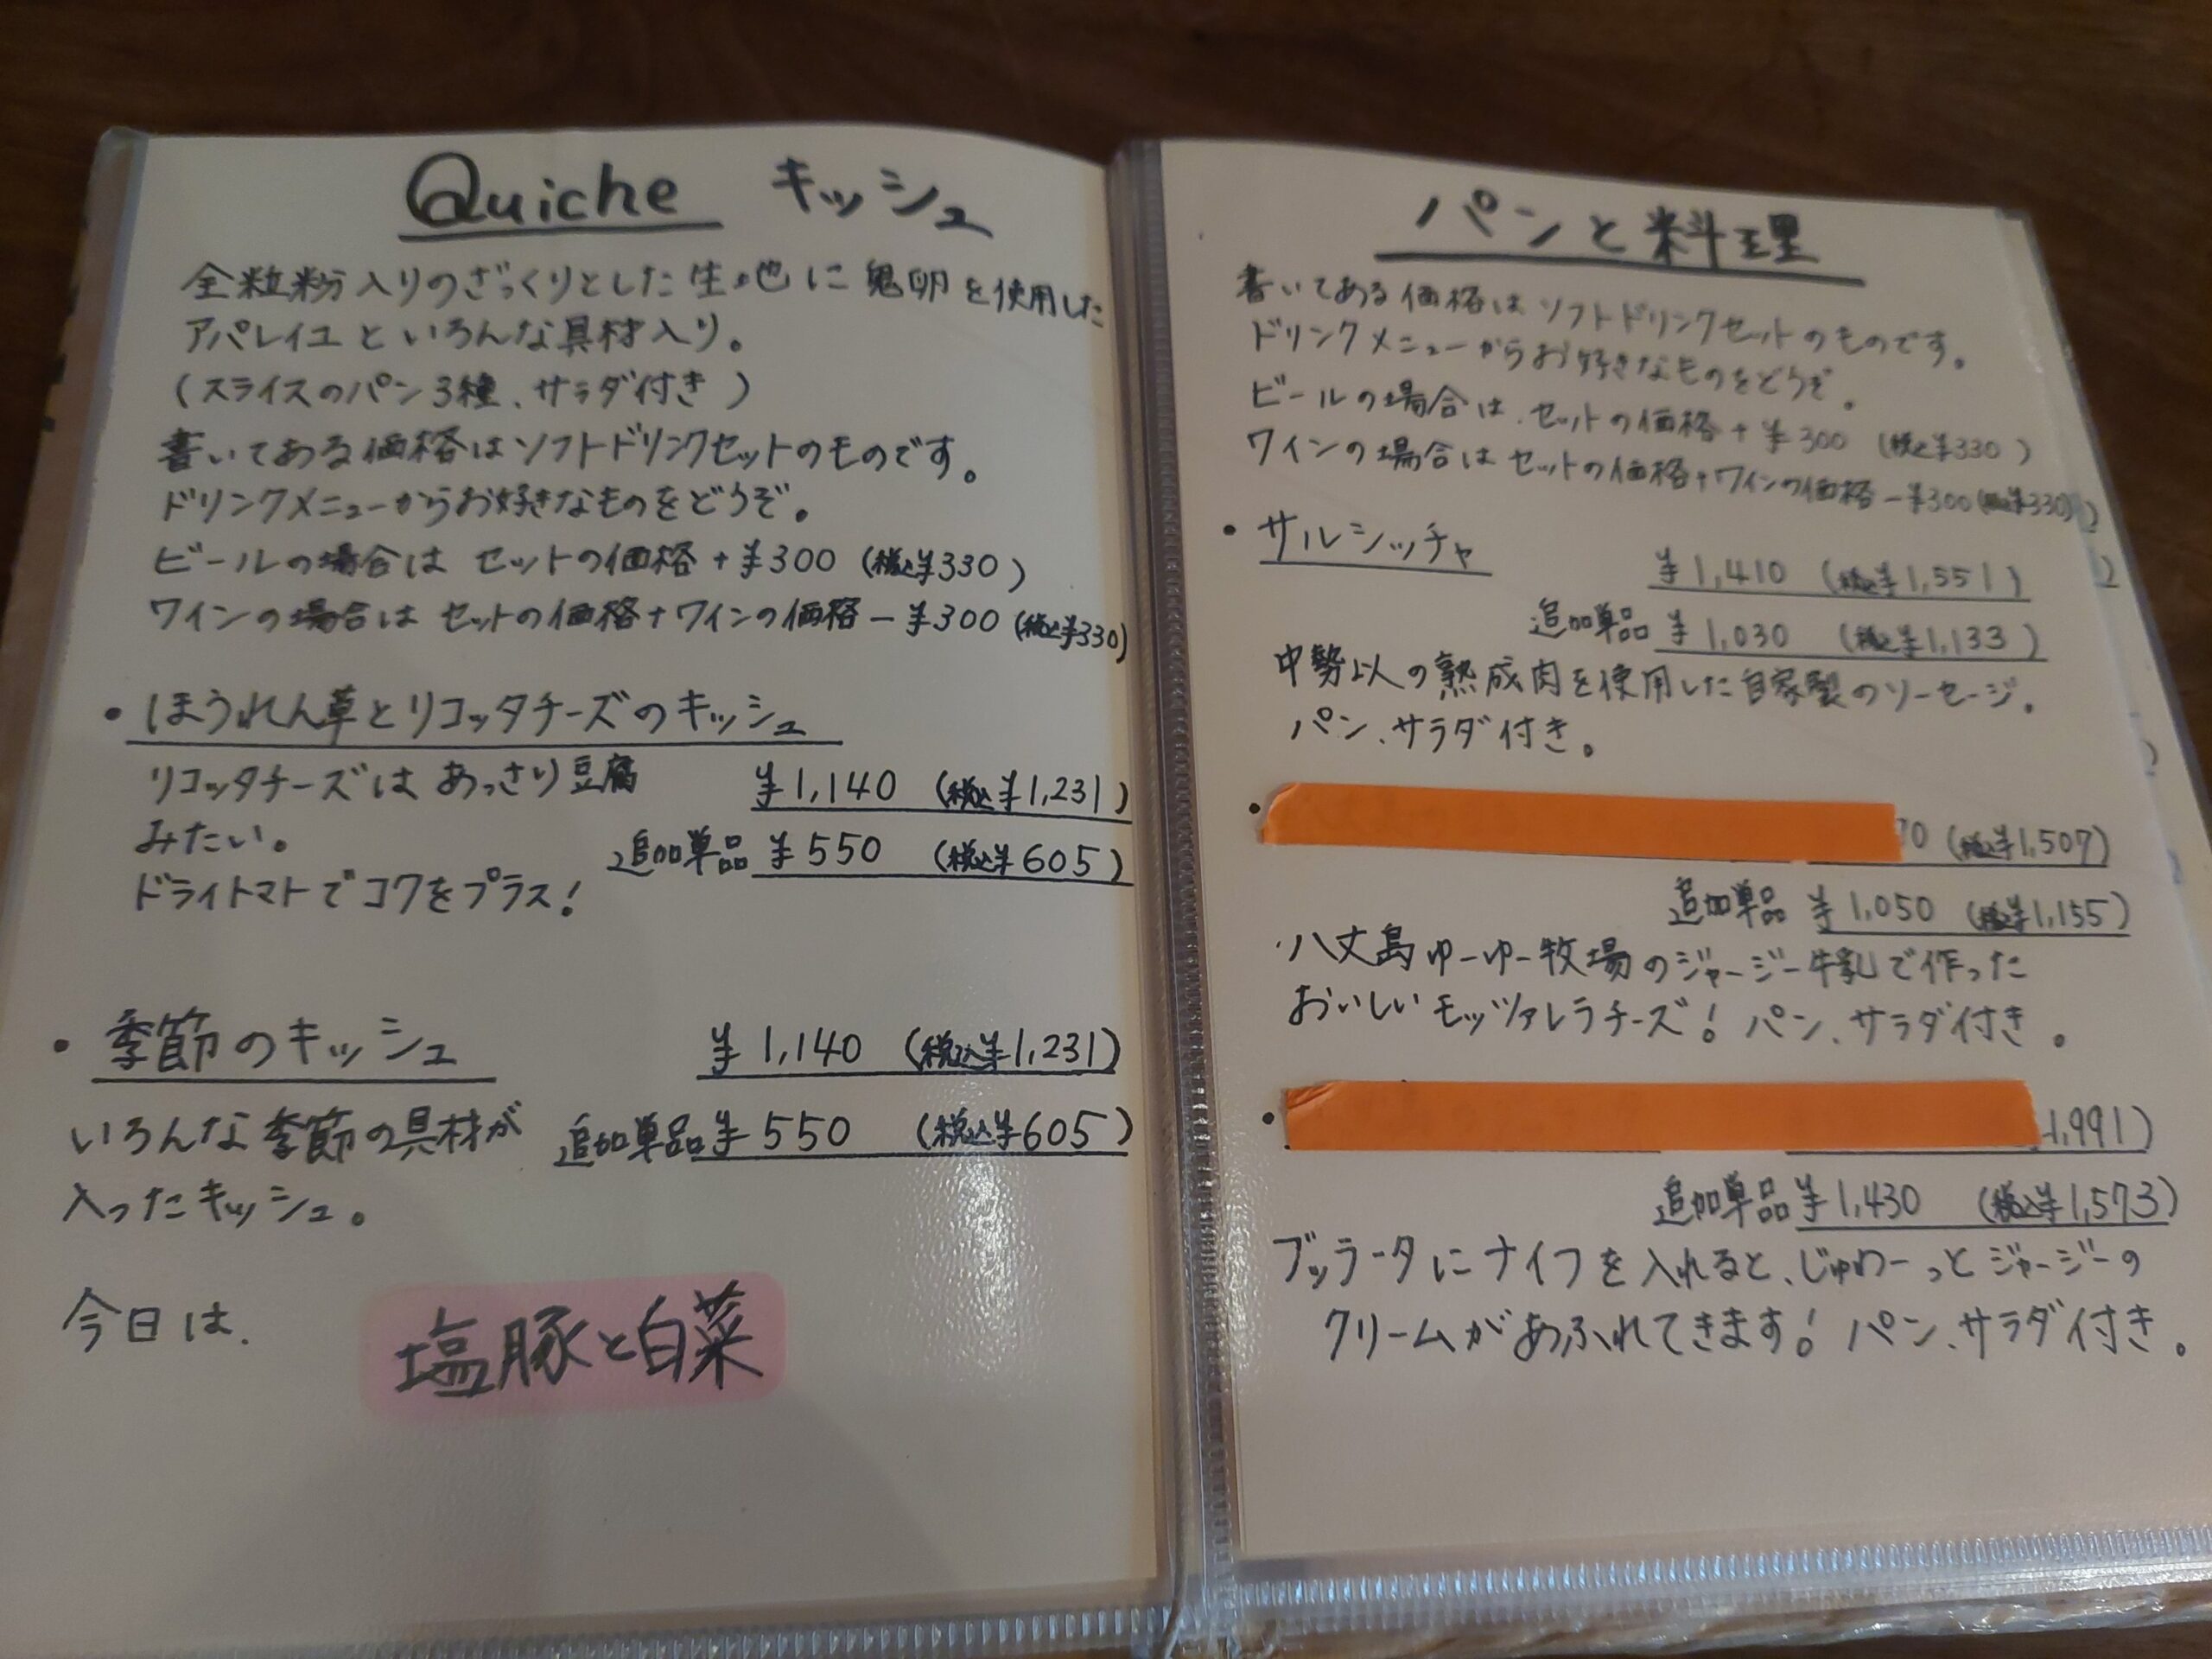 Quiche キッシュ
全粒粉入りのざっくりとした生地に 鬼卵を使用した
アパレイユといろんな具材入り。
(スライスのパン3種、サラダ付き)
書いてある価格はソフトドリンクセットのものです。
ドリンクメニューからお好きなものをどうぞ。
ビールの場合は セットの価格+¥300 (税込¥330)
ワインの場合は セットの価格+ワインの価格-¥300 (税込¥330)
・ほうれん草とリコッタチーズのキッシュ
リコッタチーズは あっさり豆腐
みたい。
ドライトマトでコクをプラス!
¥1,140 (税込¥1,231)
追加単品 ¥550 (税込¥605)
・季節のキッシュ
¥1,140 (税込¥1,231)
いろんな季節の具材が
入ったキッシュ。
追加単品 ¥550 (税込¥605)
今日は、
塩豚と白菜
パンと料理
書いてある価格はソフトドリンクセットのものです。
ドリンクメニューからお好きなものをどうぞ。
ビールの場合は、セットの価格+¥300 (税込¥330)
ワインの場合は セットの価格+ワインの価格-¥300(税込¥330)
・サルシッチャ
¥1,410 (税込¥1,551)
追加単品 ¥1,030 (税込¥1,133)
中勢以の熟成肉を使用した自家製のソーセージ。
パン、サラダ付き。
・
70 (税込¥1,507)
追加単品 ¥1,050 (税込¥1,155)
八丈島ゆーゆー牧場のジャージー牛乳で作った
おいしいモッツァレラチーズ! パン、サラダ付き。
・
1,991)
追加単品 ¥1,430 (税込¥1,573)
ブッラータにナイフを入れると、じゅわーっとジャージーの
クリームがあふれてきます! パン、サラダ付き。